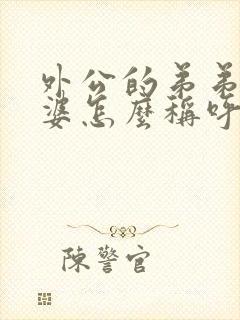 外公的弟弟
婆怎麼稱呼
陳警官